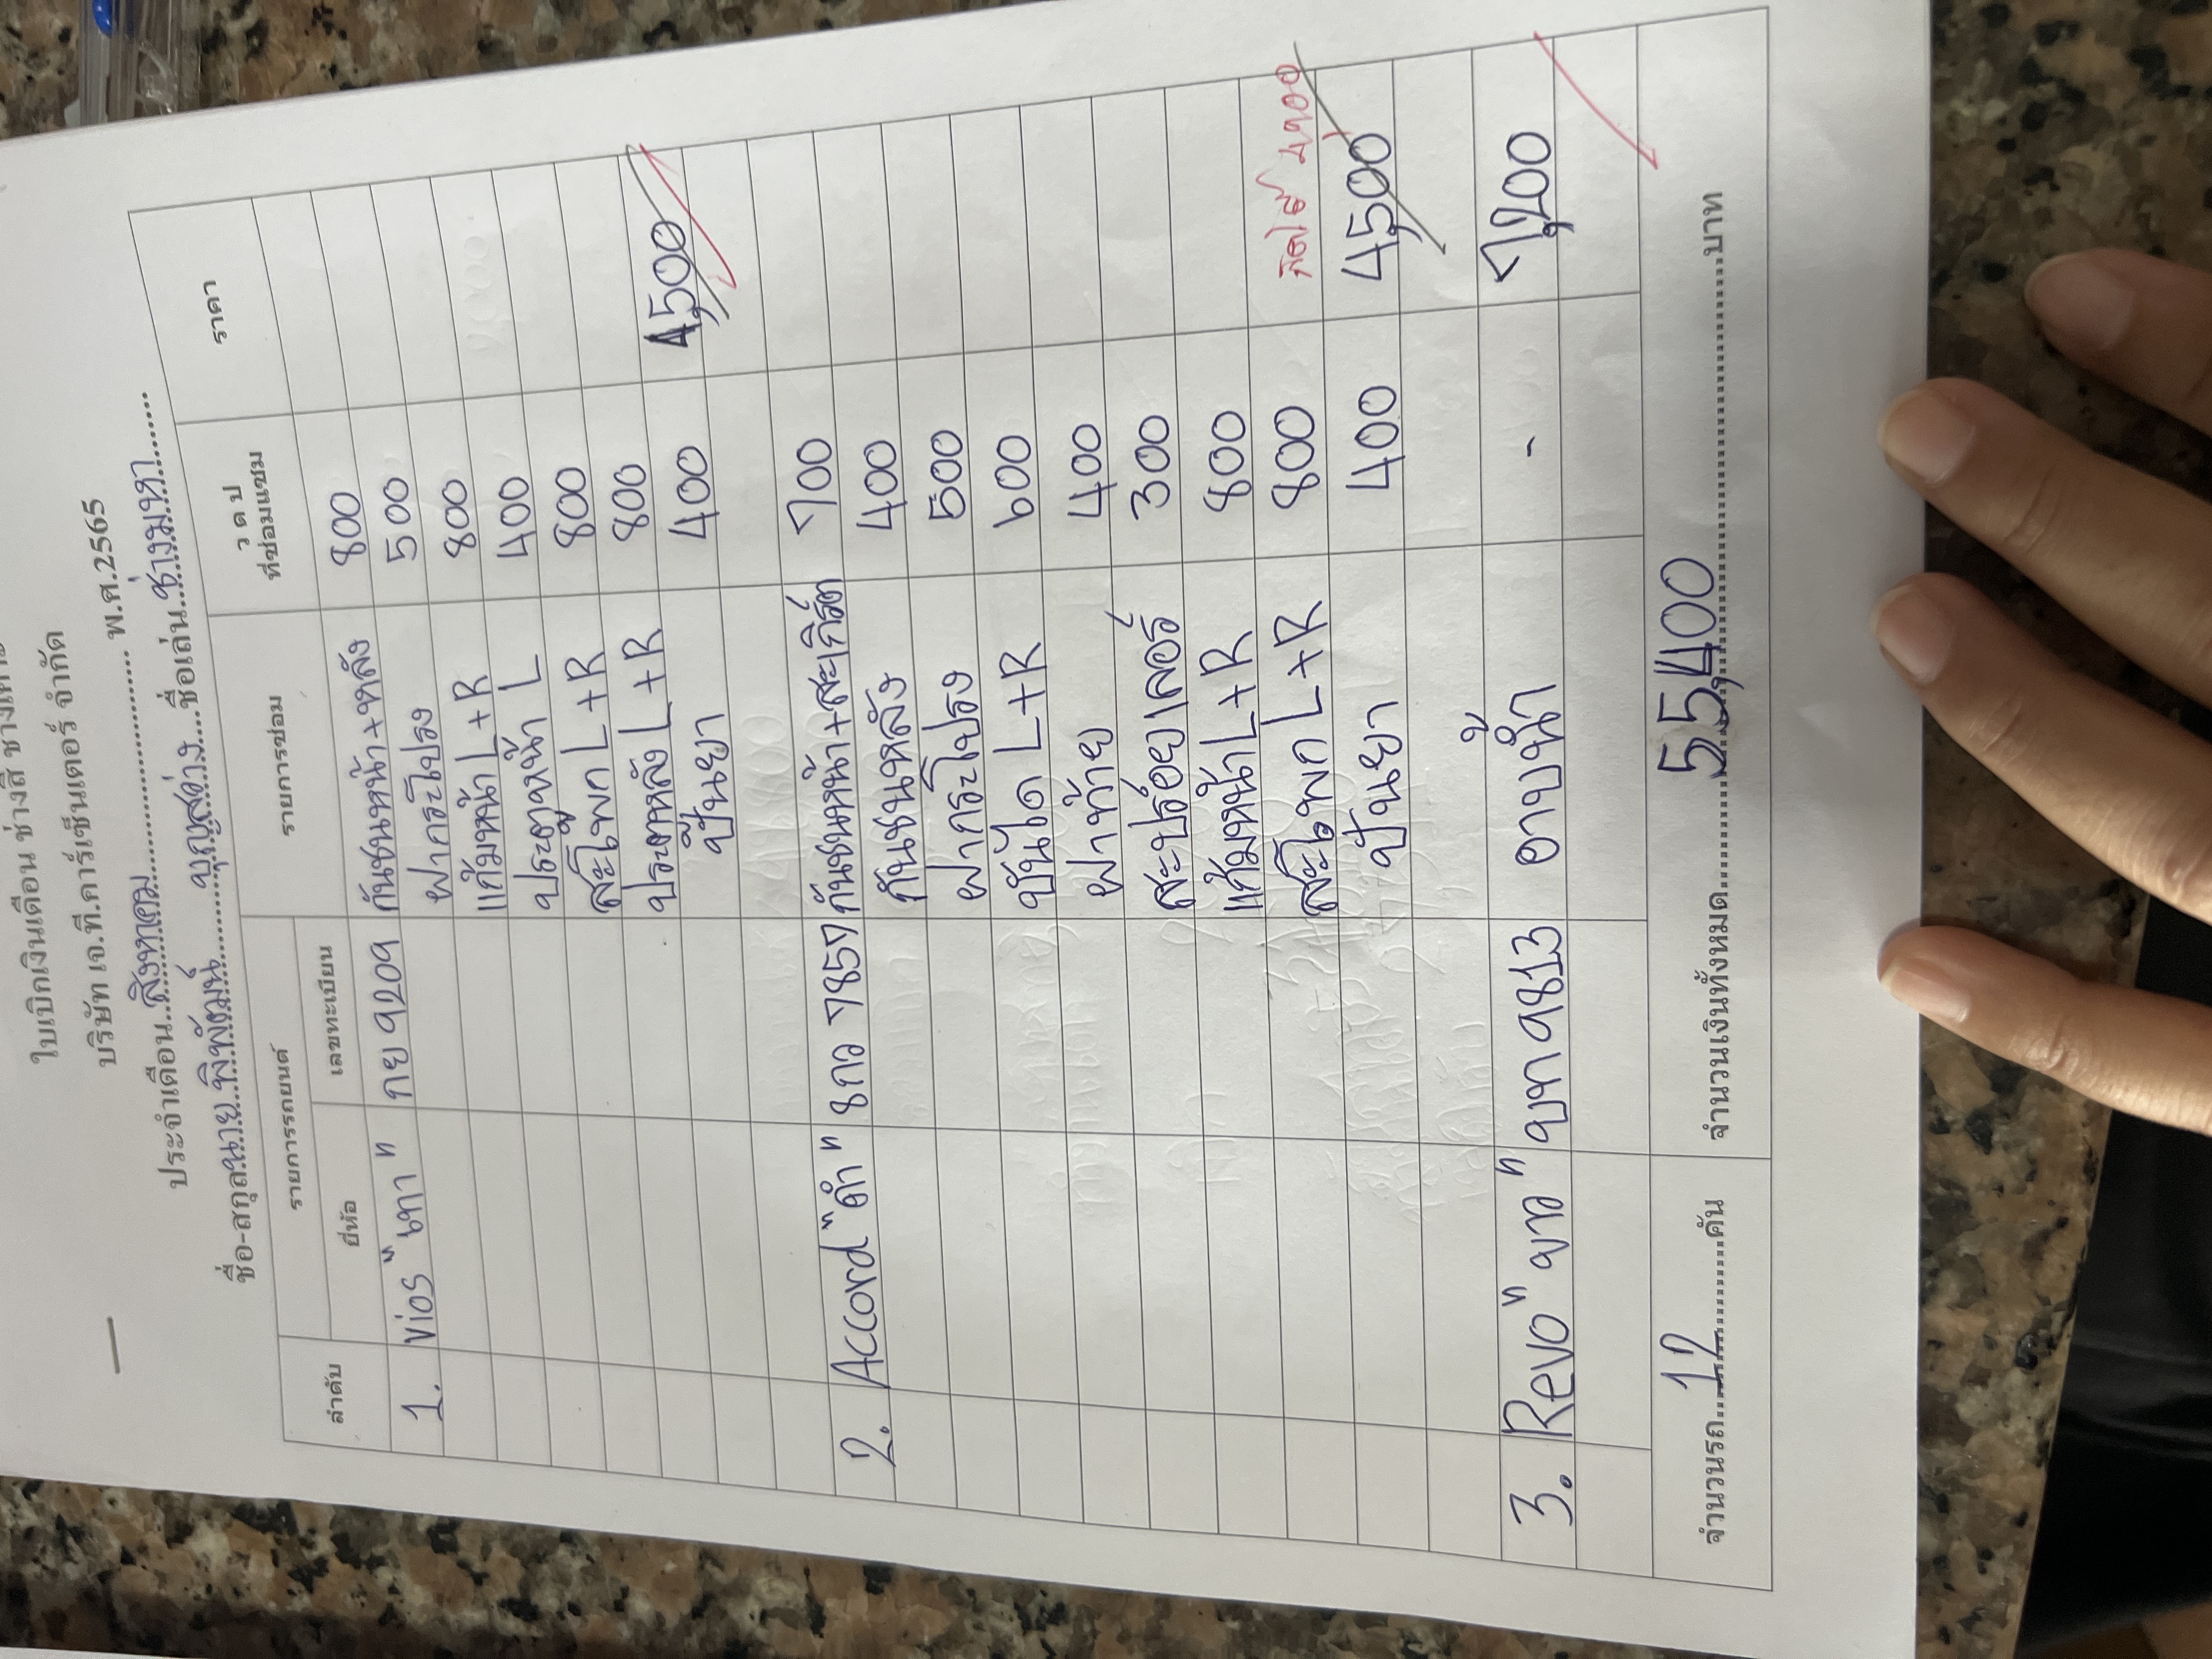 ใบเบิกเงินเดือน ช่างสี
บริษัท เจ.ที.คาร์เซ็นเตอร์ จำกัด
ประจำเดือน..สิงหาคม.......... พ.ศ.2565
ชื่อ-สกุล นายพิพัฒน์ บุญสว่าง ชื่อเล่น ช่างมหา
ลำดับ รายการรถยนต์ รายการซ่อม ว ด ป ที่ซ่อมแซม ราคา
ยี่ห้อ เลขทะเบียน
1. Vios "เทา" กย 9209 กันชนหน้า+หลัง 800
ฝากระโปรง 500
แก้มหน้า L+R 800
ประตูหน้า L 400
สะโพก L+R 800
ประตูหลัง L+R 800 4,500
ปั่นยา 400
2. Accord "ดำ" 8กว 7857 กันชนหน้า+สะเกิร์ต 700
กันชนหลัง 400
ฝากระโปรง 500
บันได L+R 600
ฝาท้าย 400
สะปร์อยเลอร์ 300
แก้มหน้า L+R 800
สะโพก L+R 800 4900
ปั่นยา 400 4,500
3. Revo "ขาว" บท 9813 อาบน้ำ - 7,200
จำนวนรถ...12...คัน จำนวนเงินทั้งหมด...55,400...บาท